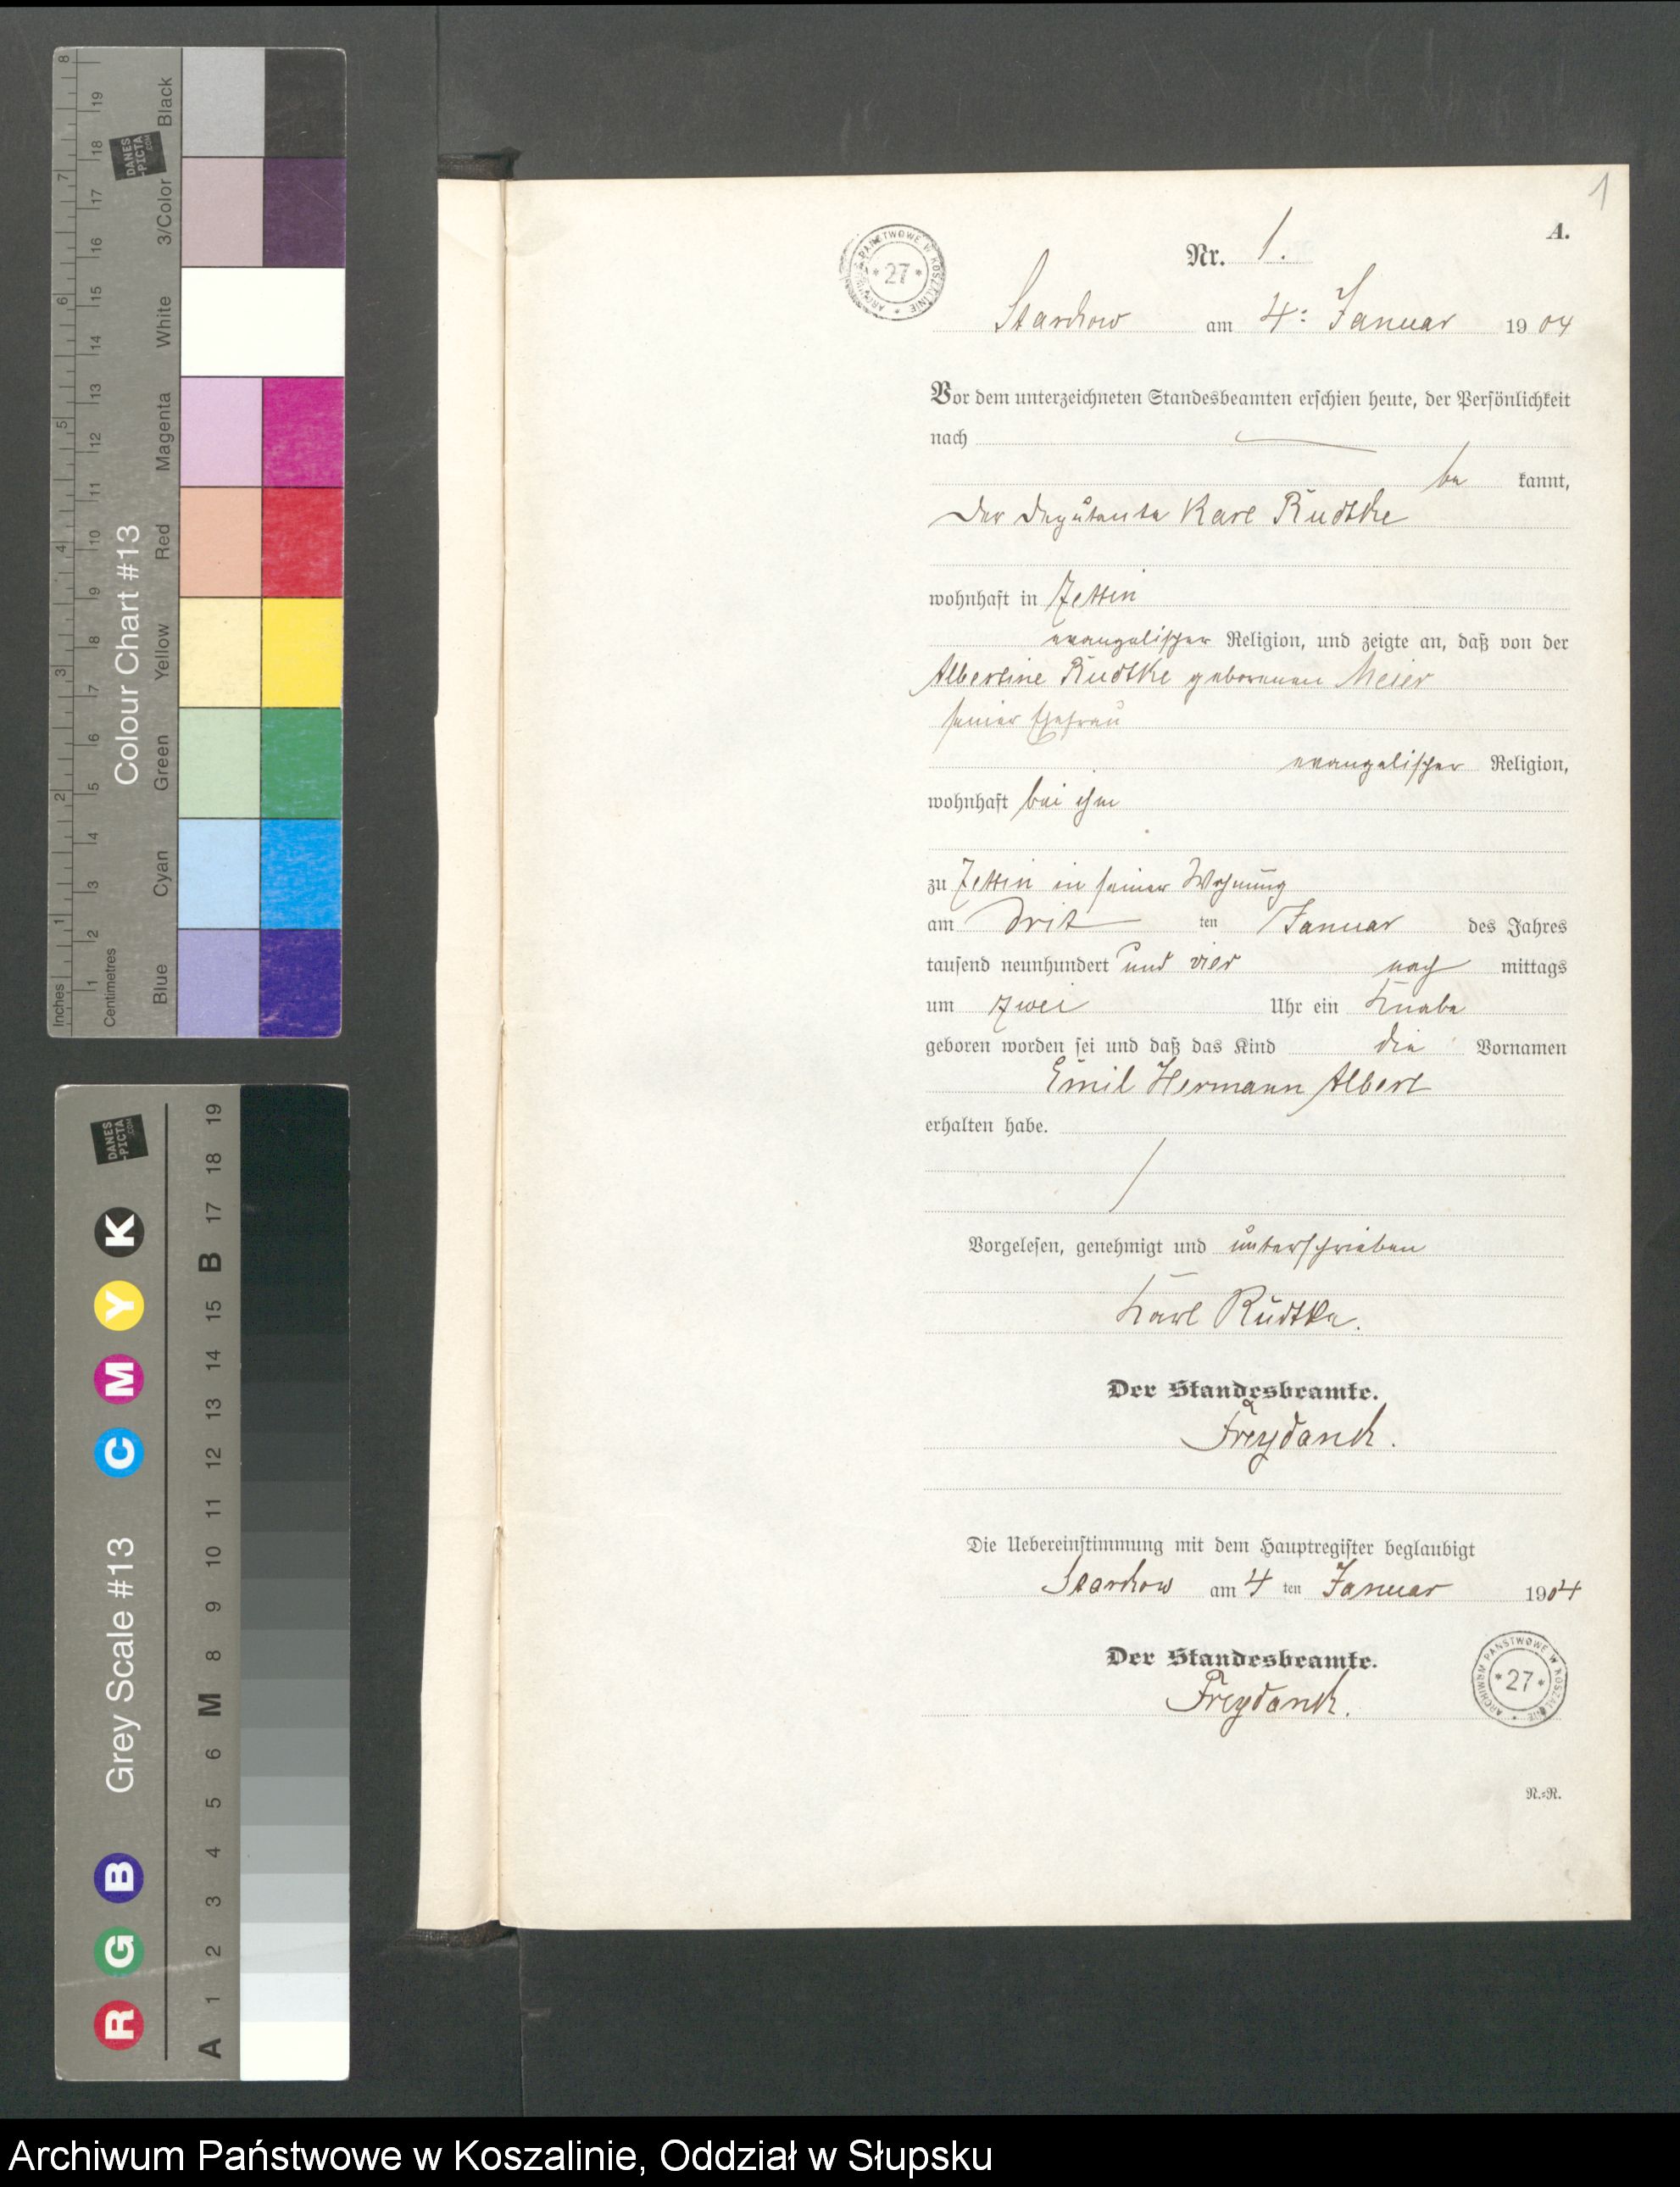 1
A.
Nr. 1.
ARCHIWUM PAŃSTWOWE W KOSZALINIE * 27 *
Starchow am 4: Januar 1904
Vor dem unterzeichneten Standesbeamten erschien heute, der Persönlichkeit
nach
be kannt,
der Deputante Karl Rudtke
wohnhaft in Zettin
evangelischer Religion, und zeigte an, daß von der
Albertine Rudtke geborenen Meier
seiner Ehefrau
evangelischer Religion,
wohnhaft bei ihm
zu Zettin in seiner Wohnung
am dritten Januar des Jahres
tausend neunhundert und vier nach mittags
um zwei Uhr ein Knabe
geboren worden sei und daß das Kind die Vornamen
Emil Hermann Albert
erhalten habe.
Vorgelesen, genehmigt und unterschrieben
Karl Rudtke.
Der Standesbeamte.
Freydanck.
Die Uebereinstimmung mit dem Hauptregister beglaubigt
Starchow am 4 ten Januar 1904
Der Standesbeamte.
Freydanck.
ARCHIWUM PAŃSTWOWE W KOSZALINIE * 27 *
N.=N.
Colour Chart #13
Black
3/Color
White
Magenta
Red
Yellow
Green
Cyan
Blue
Inches 1 2 3 4 5 6 7 8
Centimetres 1 2 3 4 5 6 7 8 9 10 11 12 13 14 15 16 17 18 19
DANES-PICTA.COM
Grey Scale #13
R G B C M Y K
A 1 2 3 4 5 6 M 8 9 10 11 12 13 14 15 B 17 18 19
DANES-PICTA.COM
Archiwum Państwowe w Koszalinie, Oddział w Słupsku